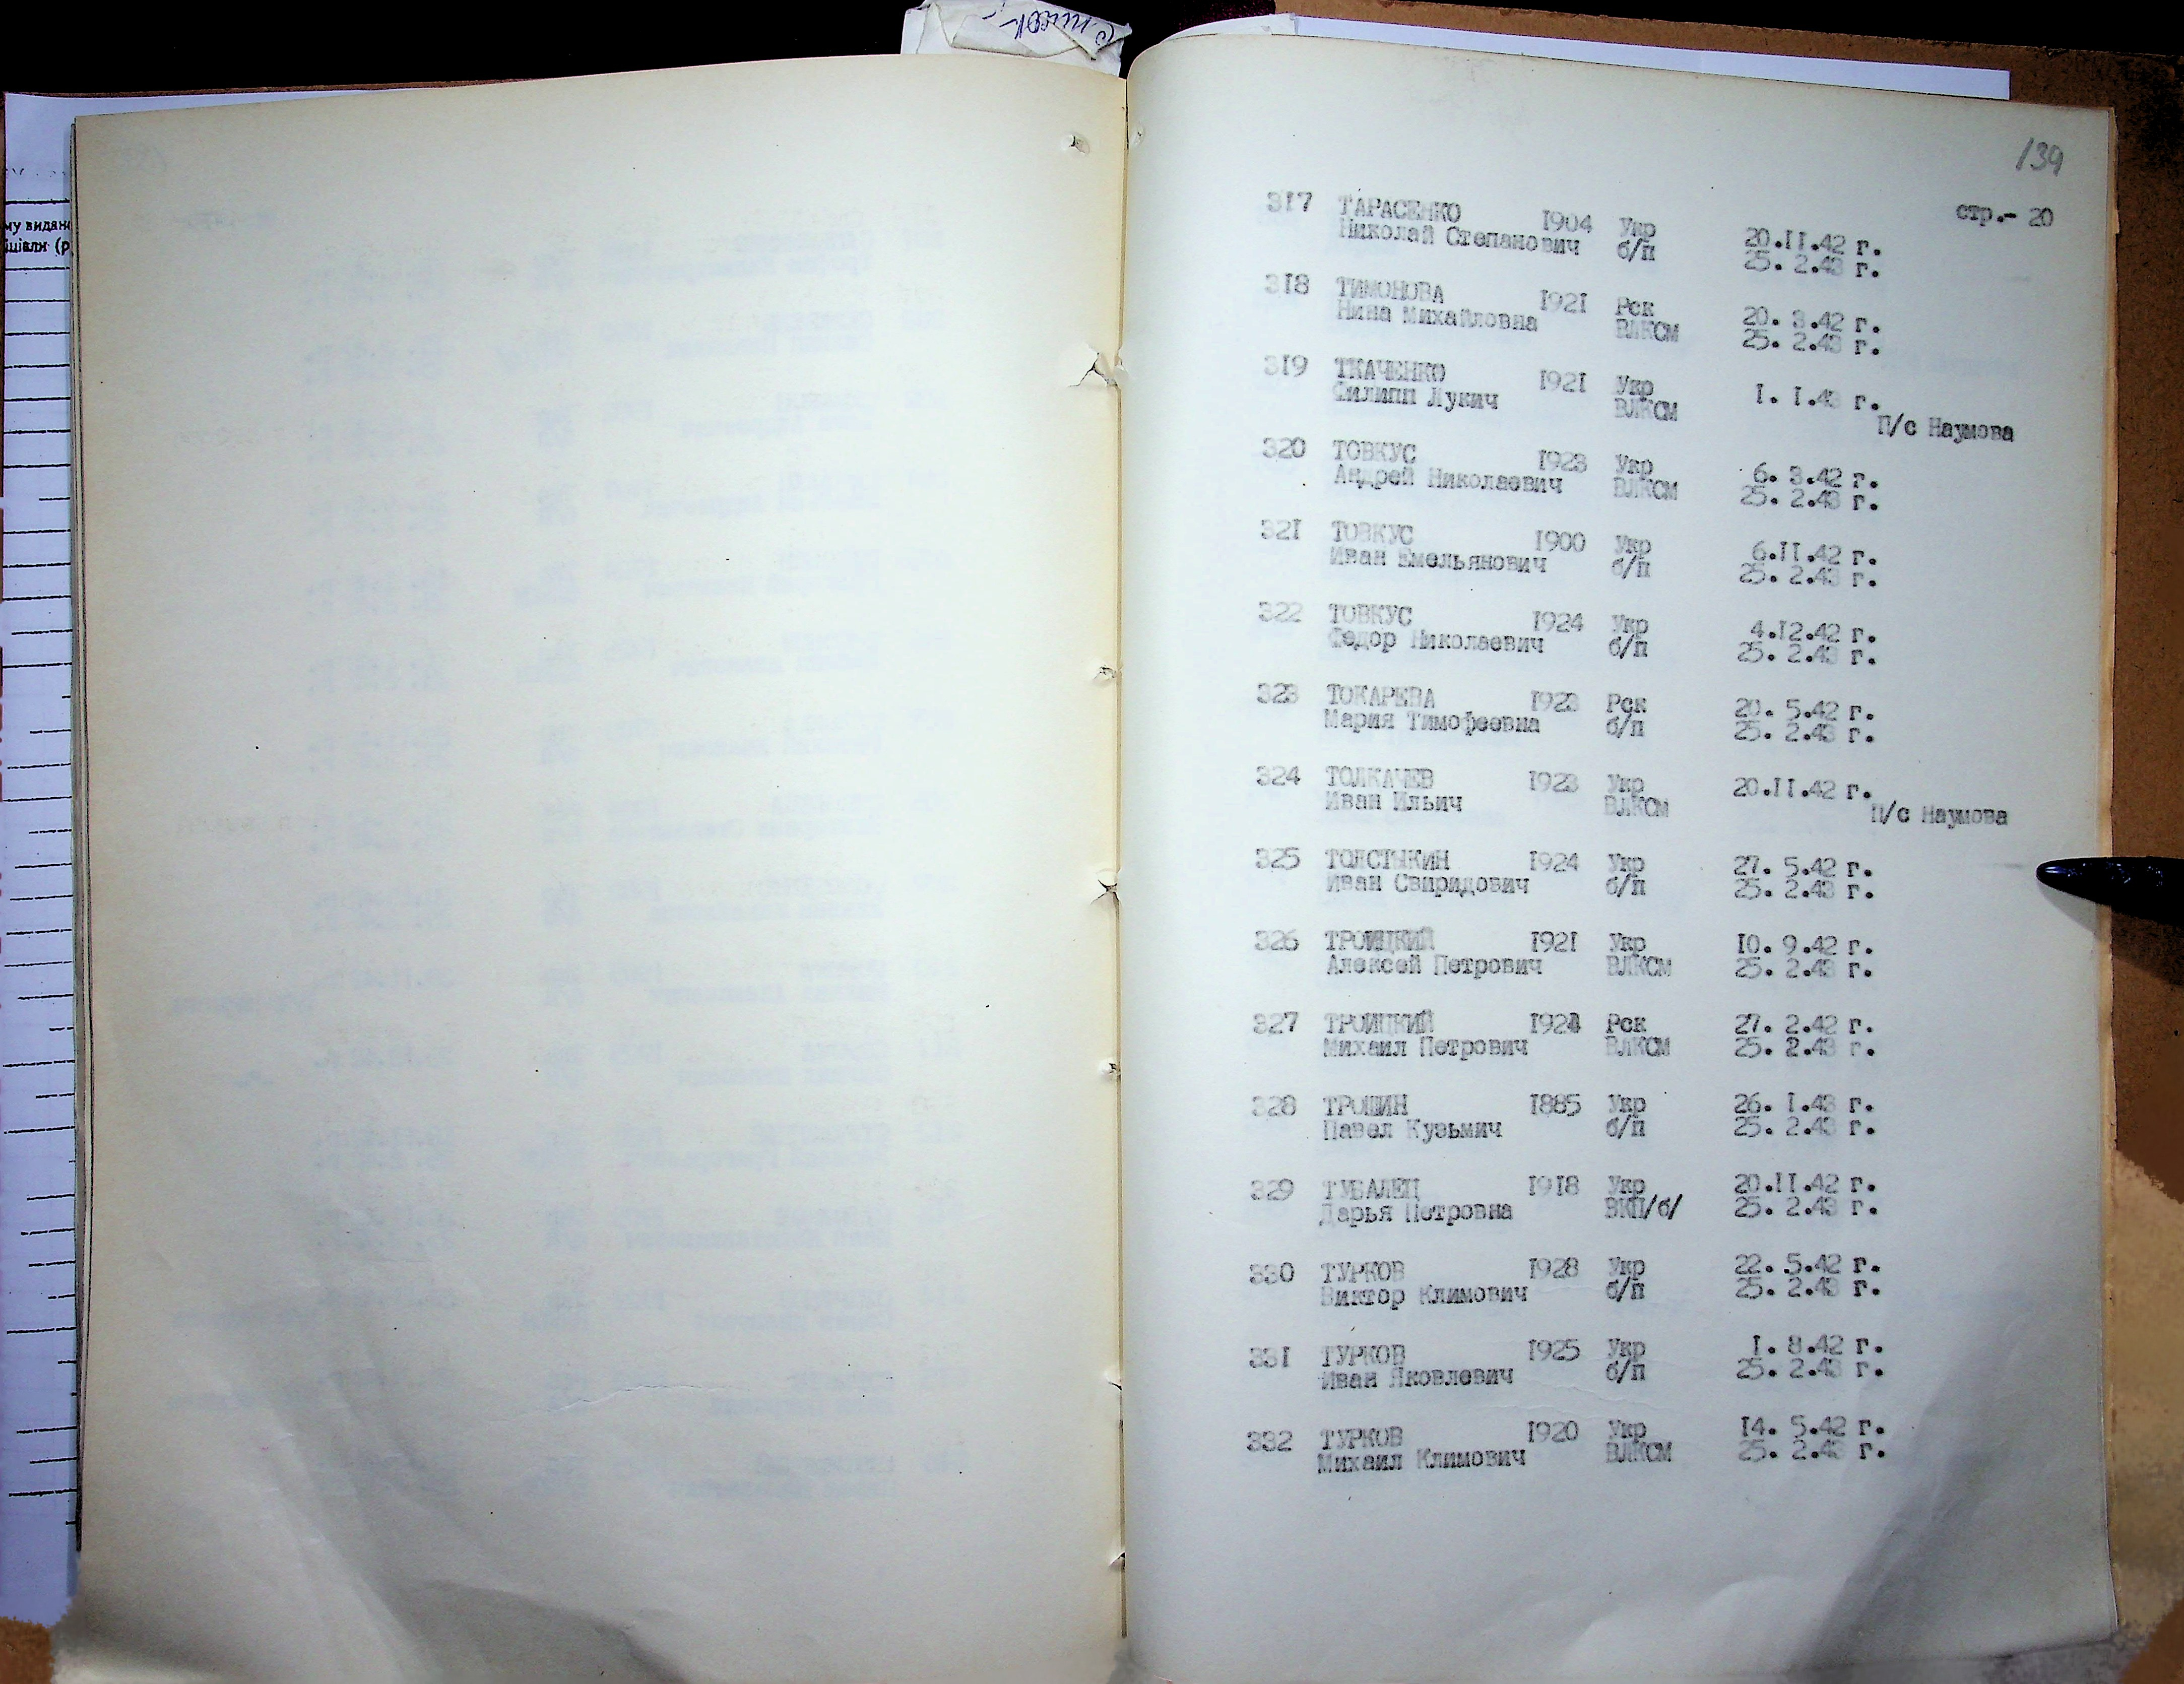 Список
139
стр.- 20
му видано
ціали (р
317 ТАРАСЕНКО 1904 Укр 20.II.42 г.
Николай Степанович б/п 25. 2.43 г.
318 ТИМОНОВА 1921 Рск 20. 3.42 г.
Нина Михайловна ВЛКСМ 25. 2.43 г.
319 ТКАЧЕНКО 1921 Укр 1. 1.43 г.
Филипп Лукич ВЛКСМ П/с Наумова
320 ТОВКУС 1923 Укр 6. 3.42 г.
Андрей Николаевич ВЛКСМ 25. 2.43 г.
321 ТОВКУС 1900 Укр 6.II.42 г.
Иван Емельянович б/п 25. 2.43 г.
322 ТОВКУС 1924 Укр 4.12.42 г.
Федор Николаевич б/п 25. 2.43 г.
323 ТОКАРЕВА 1923 Рск 20. 5.42 г.
Мария Тимофеевна б/п 25. 2.43 г.
324 ТОЛКАЧЕВ 1923 Укр 20.II.42 г.
Иван Ильич ВЛКСМ П/с Наумова
325 ТОЛСТЫКИН 1924 Укр 27. 5.42 г.
Иван Свиридович б/п 25. 2.43 г.
326 ТРОИЦКИЙ 1921 Укр 10. 9.42 г.
Алексей Петрович ВЛКСМ 25. 2.43 г.
327 ТРОИЦКИЙ Рск 27. 2.42 г.
Михаил Петрович ВЛКСМ 25. 2.43 г.
328 ТРОШИН 1885 Укр 26. 1.43 г.
Павел Кузьмич б/п 25. 2.43 г.
329 ТУБАЛЕЦ 1918 Укр 20.II.42 г.
Дарья Петровна ВКП/б/ 25. 2.43 г.
330 ТУРКОВ 1928 Укр 22. 5.42 г.
Виктор Климович б/п 25. 2.43 г.
331 ТУРКОВ 1925 Укр 1. 8.42 г.
Иван Яковлевич б/п 25. 2.43 г.
332 ТУРКОВ 1920 Укр 14. 5.42 г.
Михаил Климович ВЛКСМ 25. 2.43 г.